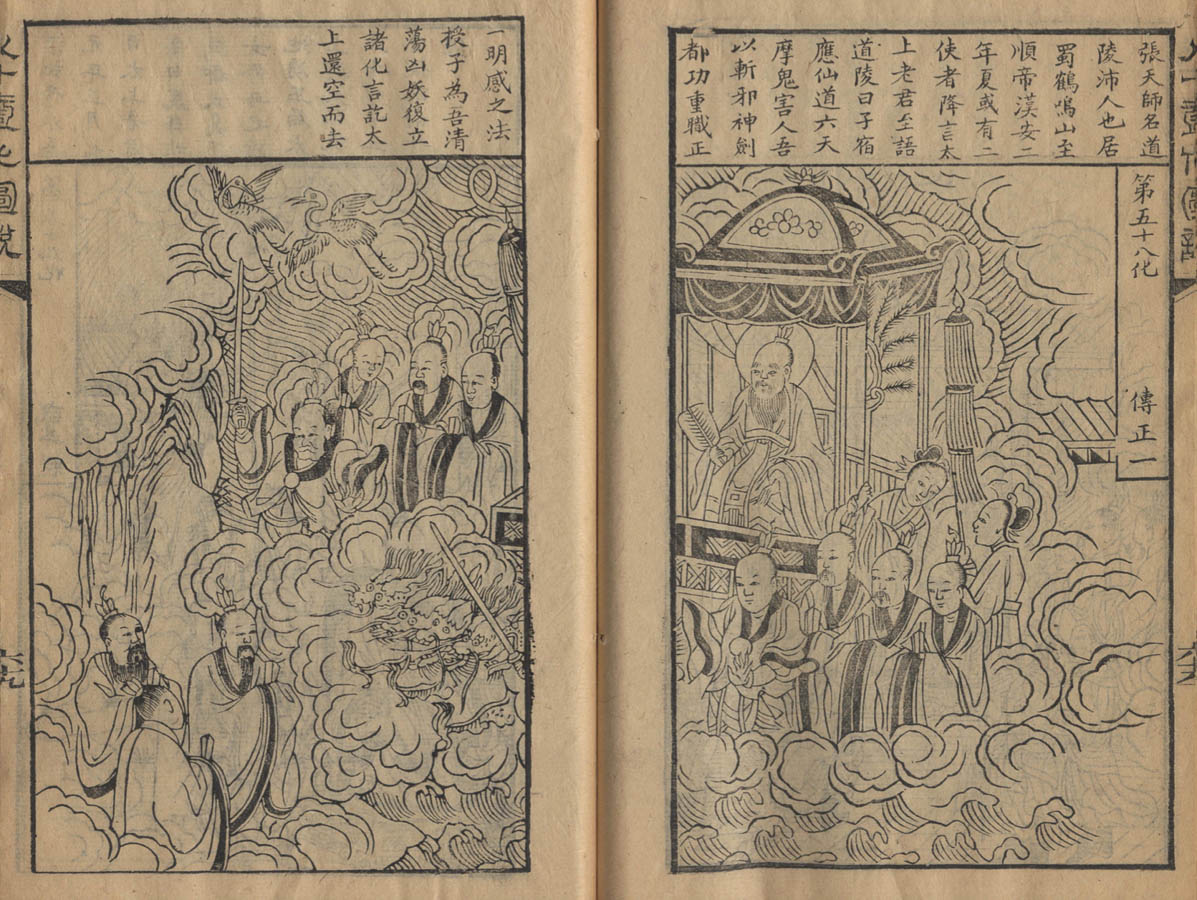 第五十八化
傳正一
張天師名道
陵沛人也居
蜀鶴鳴山至
順帝漢安二
年夏或有二
使者降言太
上老君至語
道陵曰子宿
應仙道六天
摩鬼害人吾
以斬邪神劍
都功重職正
一明感之法
授子為吾清
蕩凶妖復立
諸化言訖太
上還空而去
八十壹化圖說